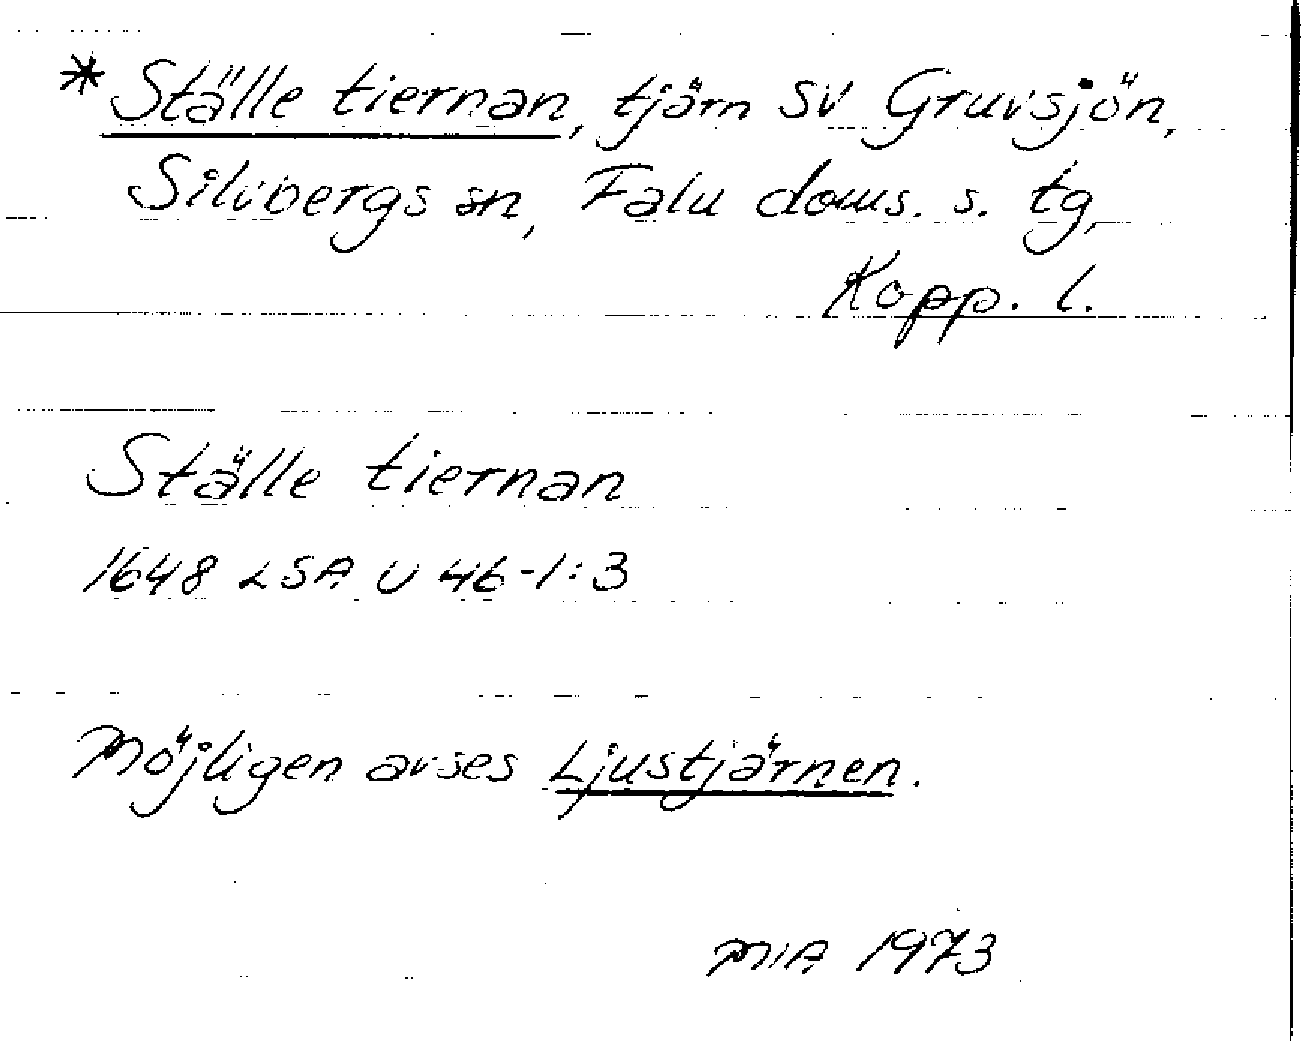 * Ställe tiernan, tjärn SV Gruvsjön,
Silvbergs sn, Falu doms. s. tg,
Kopp. l.
Ställe tiernan
1648 LSA U 46-1:3
Möjligen avses Ljustjärnen.
MIA 1973